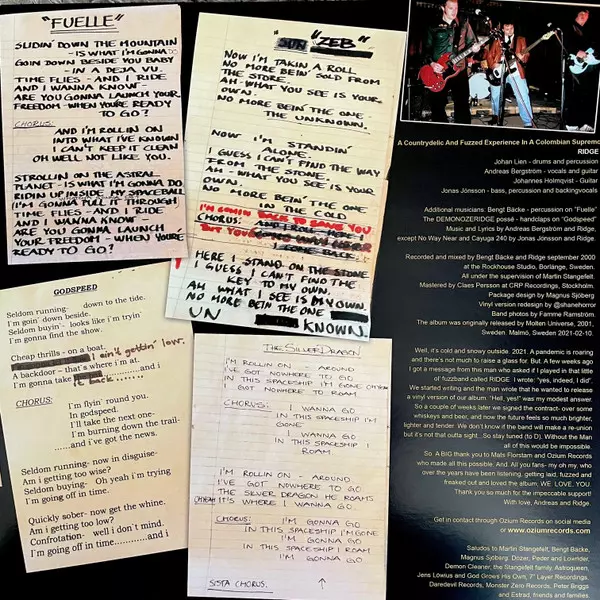 "FUELLE"
SLIDIN' DOWN THE MOUNTAIN
- IS WHAT I'M GONNA DO
GOIN DOWN BESIDE YOU BABY
- IN A DEJA VU
TIME FLIES - AND I RIDE
AND I WANNA KNOW -
ARE YOU GONNA LAUNCH YOUR
FREEDOM - WHEN YOU'RE READY
TO GO?
CHORUS:
AND I'M ROLLIN ON
INTO WHAT I'VE KNOWN
I CAN'T KEEP IT CLEAN
OH WELL NOT LIKE YOU.
STROLLIN ON THE ASTRAL
PLANET - IS WHAT I'M GONNA DO
RIDIN UP INSIDE MY SPACEBALL
I'M GONNA PULL IT THROUGH
TIME FLIES - AND I RIDE
AND I WANNA KNOW -
ARE YOU GONNA LAUNCH
YOUR FREEDOM - WHEN YOU'RE
READY TO GO?
"ZEB"
NOW I'M TAKIN A ROLL
NO MORE BEIN' SOLD FROM
THE STORE.
AH - WHAT YOU SEE IS YOUR
OWN.
NO MORE BEIN' THE ONE
THE UNKNOWN.
NOW I'M STANDIN'
ALONE.
I GUESS I CAN'T FIND THE WAY
FROM THE STONE.
AH - WHAT YOU SEE IS YOUR
OWN.
NO MORE BEIN' THE ONE
IN THE COLD
CHORUS:
HERE I STAND ON THE STONE
I GUESS I CAN'T FIND THE
KEY TO MY OWN.
AH WHAT I SEE IS MY OWN
NO MORE BEIN THE ONE
UN KNOWN.
GODSPEED
Seldom running- down to the tide.
I'm goin' down beside.
Seldom buyin'- looks like i'm tryin'
I'm gonna find the show.
Cheap thrills - on a boat.
i ain't gettin' low.
A backdoor – that's where i'm at.
I'm gonna take
it back..........and i
CHORUS: I'm flyin' round you.
In godspeed.
I'll take the next one-
I'm burning down the trail-
......and i've got the news.
Seldom running- now in disguise-
Am i getting too wise?
Seldom buying- Oh yeah i'm trying
I'm going off in time.
Quickly sober- now get the whine.
Am i getting too low?
Confrotation- well i don't mind.
I'm going off in time............and i
THE SILVER DRAGON
I'M ROLLIN ON AROUND
I'VE GOT NOWHERE TO GO
IN THIS SPACESHIP I'M GONE
GOT NOWHERE TO ROAM
CHORUS: I WANNA GO
IN THIS SPACESHIP I'M
GONE
I WANNA GO
IN THIS SPACESHIP I
ROAM.
I'M ROLLIN ON AROUND.
I'VE GOT NOWHERE TO GO
THE SILVER DRAGON HE ROAMS
IT'S WHERE I WANNA GO.
CHORUS: I'M GONNA GO
IN THIS SPACESHIP I'M GONE
I'M GONNA GO
IN THIS SPACESHIP I ROAM
I'M GONNA GO
SISTA CHORUS. ↑
A Countrydelic And Fuzzed Experience In A Colombian Supremo
RIDGE
Johan Lien - drums and percussion
Andreas Bergström - vocals and guitar
Johannes Holmqvist - Guitar
Jonas Jonsson - bass, percussion and backingvocals
Additional musicians: Bengt Bäcke - percussion on "Fuelle"
The DEMONOZERIDGE possé - handclaps on "Godspeed"
Music and Lyrics by Andreas Bergström and Ridge,
except No Way Near and Cayuga 240 by Jonas Jonsson and Ridge.
Recorded and mixed by Bengt Bäcke and Ridge september 2000
at the Rockhouse Studio, Borlänge, Sweden.
All under the supervision of Martin Stangefelt.
Mastered by Claes Persson at CRP Recordings, Stockholm.
Package design by Magnus Sjöberg
Vinyl version redesign by @shanehorror
Band photos by Famme Ramström
The album was originally released by Molten Universe, 2001,
Sweden. Malmö, Sweden 2021-02-10.
Well, it's cold and snowy outside. 2021. A pandemic is roaring
and there's not much to raise a glass for. But. A few weeks ago
I got a message from this man who asked if I played in that little
of fuzzband called RIDGE. I wrote: "yes, indeed, I did".
We started writing and the man wrote that he wanted to release
a vinyl version of our album. "Hell, yes!" was my modest answer.
So a couple of weeks later we signed the contract- over some
whiskeys and beer, and now the future feels so much brighter,
lighter and tender. We don't know if the band will make a re-union
but it's not that outta sight...So stay tuned (to D). Without the Man
all of this would be impossible.
So. A BIG thank you to Mats Florstam and Ozium Records
who made all this possible. And. All you fans- my oh my, who
over the years have been listening, getting laid, fuzzed and
freaked out and loved the album; WE. LOVE. YOU.
Thank you so much for the impeccable support!
With love, Andreas and Ridge.
Get in contact through Ozium Records on social media
or www.oziumrecords.com
Saludos to Martin Stangefelt, Bengt Bäcke,
Magnus Sjöberg, Dozer, Peder and Lowrider,
Demon Cleaner, the Stangefelt family, Astroqueen,
Jens Lövius and God Groes His Own, 7" Layer Recordings,
Daredevil Records, Monster Zero Records, Peter Briggs
and Estrad, friends and families.